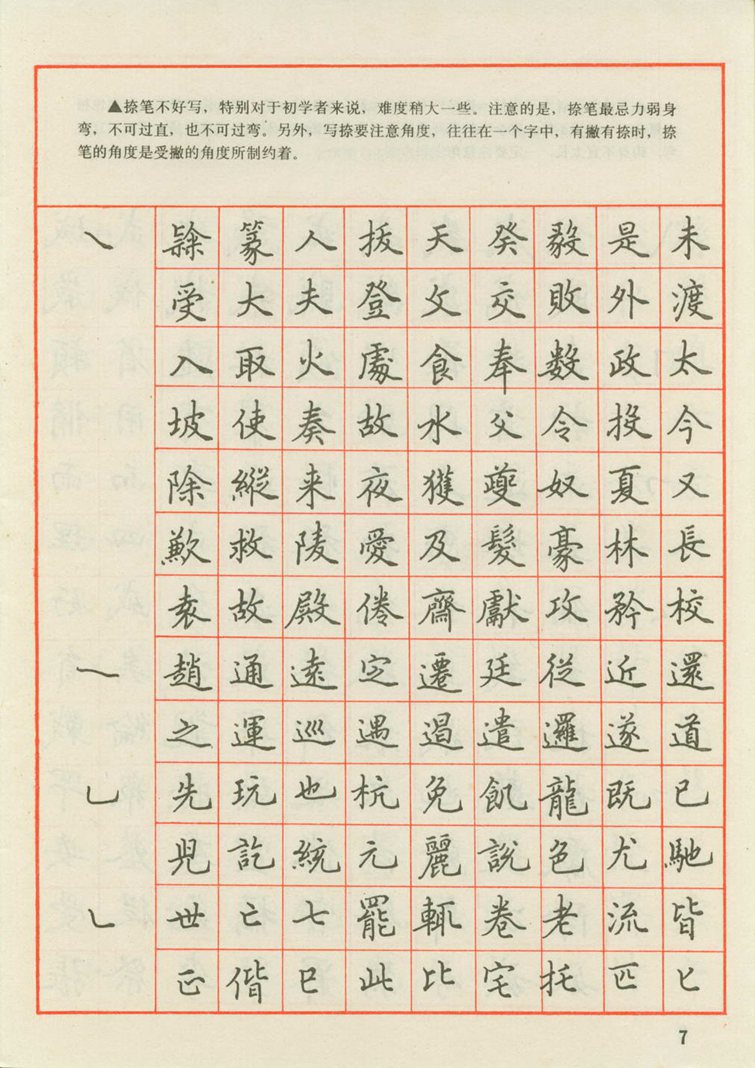 ▲捺笔不好写，特别对于初学者来说，难度稍大一些。注意的是，捺笔最忌力弱身
弯，不可过直，也不可过弯。另外，写捺要注意角度，往往在一个字中，有撇有捺时，捺
笔的角度是受撇的角度所制约着。
㇏ 篆人拔天癸毅是未
受大夫登文交敗外渡
入取火處食奉数政太
坡使奏故水父令投今
除縱来夜獲夔奴夏又
歉救陵愛及髮豪林長
袁故殿倦齋獻攻矜校
趙通遠定遷廷從近還
之運巡遇過遣邏遂道
乚 先玩也杭免飢龍既已
兒訖統元麗說色尤馳
世亡七罷輒卷老流皆
正偕巳此比宅托匹匕
7